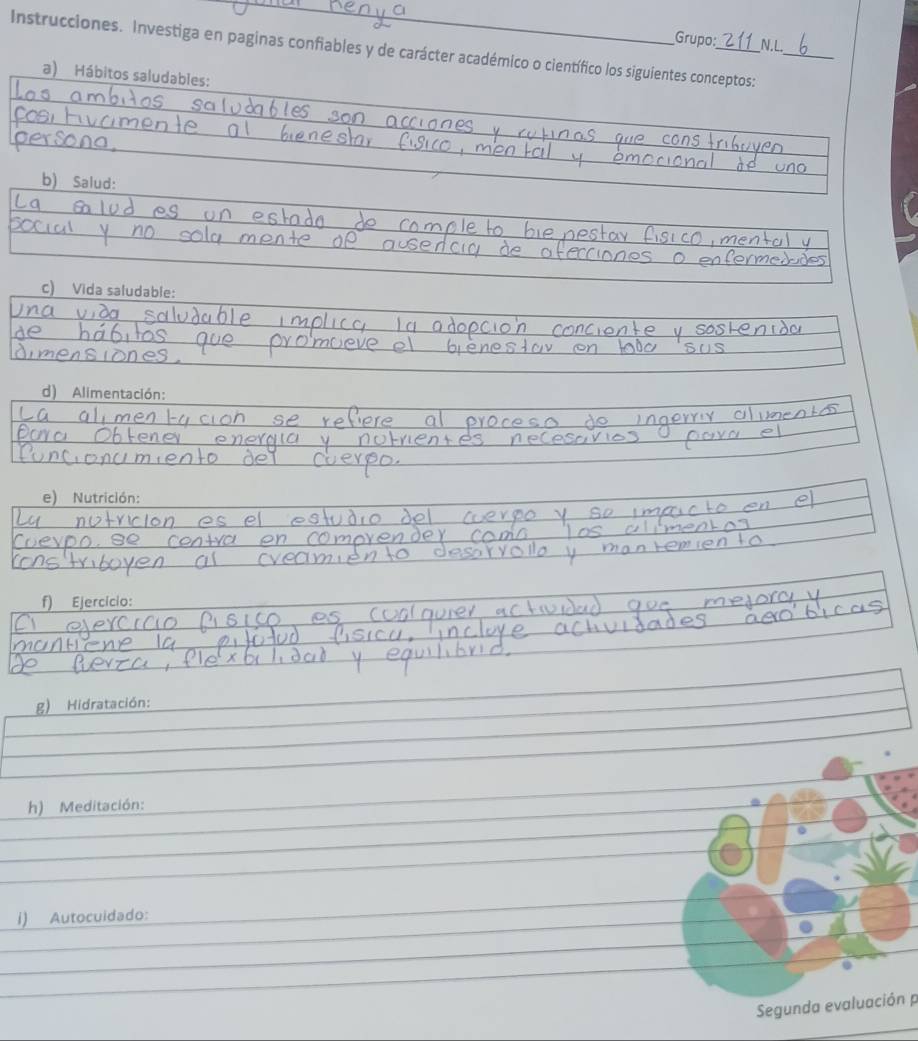 Kenya
Grupo: 211 N.L. 6
Instrucciones. Investiga en paginas confiables y de carácter académico o científico los siguientes conceptos:
a) Hábitos saludables:
los ambitos saludables son acciones y rutinas que constribuyen
positivamente al bienestar fisico, mental y emocional de una
persona.
b) Salud:
La salud es un estado de completo bienestar fisico, mental y
social y no sola mente de ausencia de afecciones o enfermedades
c) Vida saludable:
Una vida saludable implica la adopción conciente y sostenida
de hábitos que promueve el bienestar en toda sus
dimensiones.
d) Alimentación:
La alimentacion se refiere al proceso de ingerrir alimentos
para obtener energia y nutrientes necesarios para el
funcionamiento del cuerpo.
e) Nutrición:
La nutricion es el estudio del cuerpo y se impacto en el
cuerpo. se centra en comprender como los alimentos
constriboyen al creamiento desarrollo y mantemiento
f) Ejercicio:
El ejercicio fisico es cualquier actividad que mejora y
mantiene la fisica. incluye actividades aerobicas
de fuerza, flexbilidad y equilibrid.
g) Hidratación:
h) Meditación:
i) Autocuidado:
Segunda evaluación p